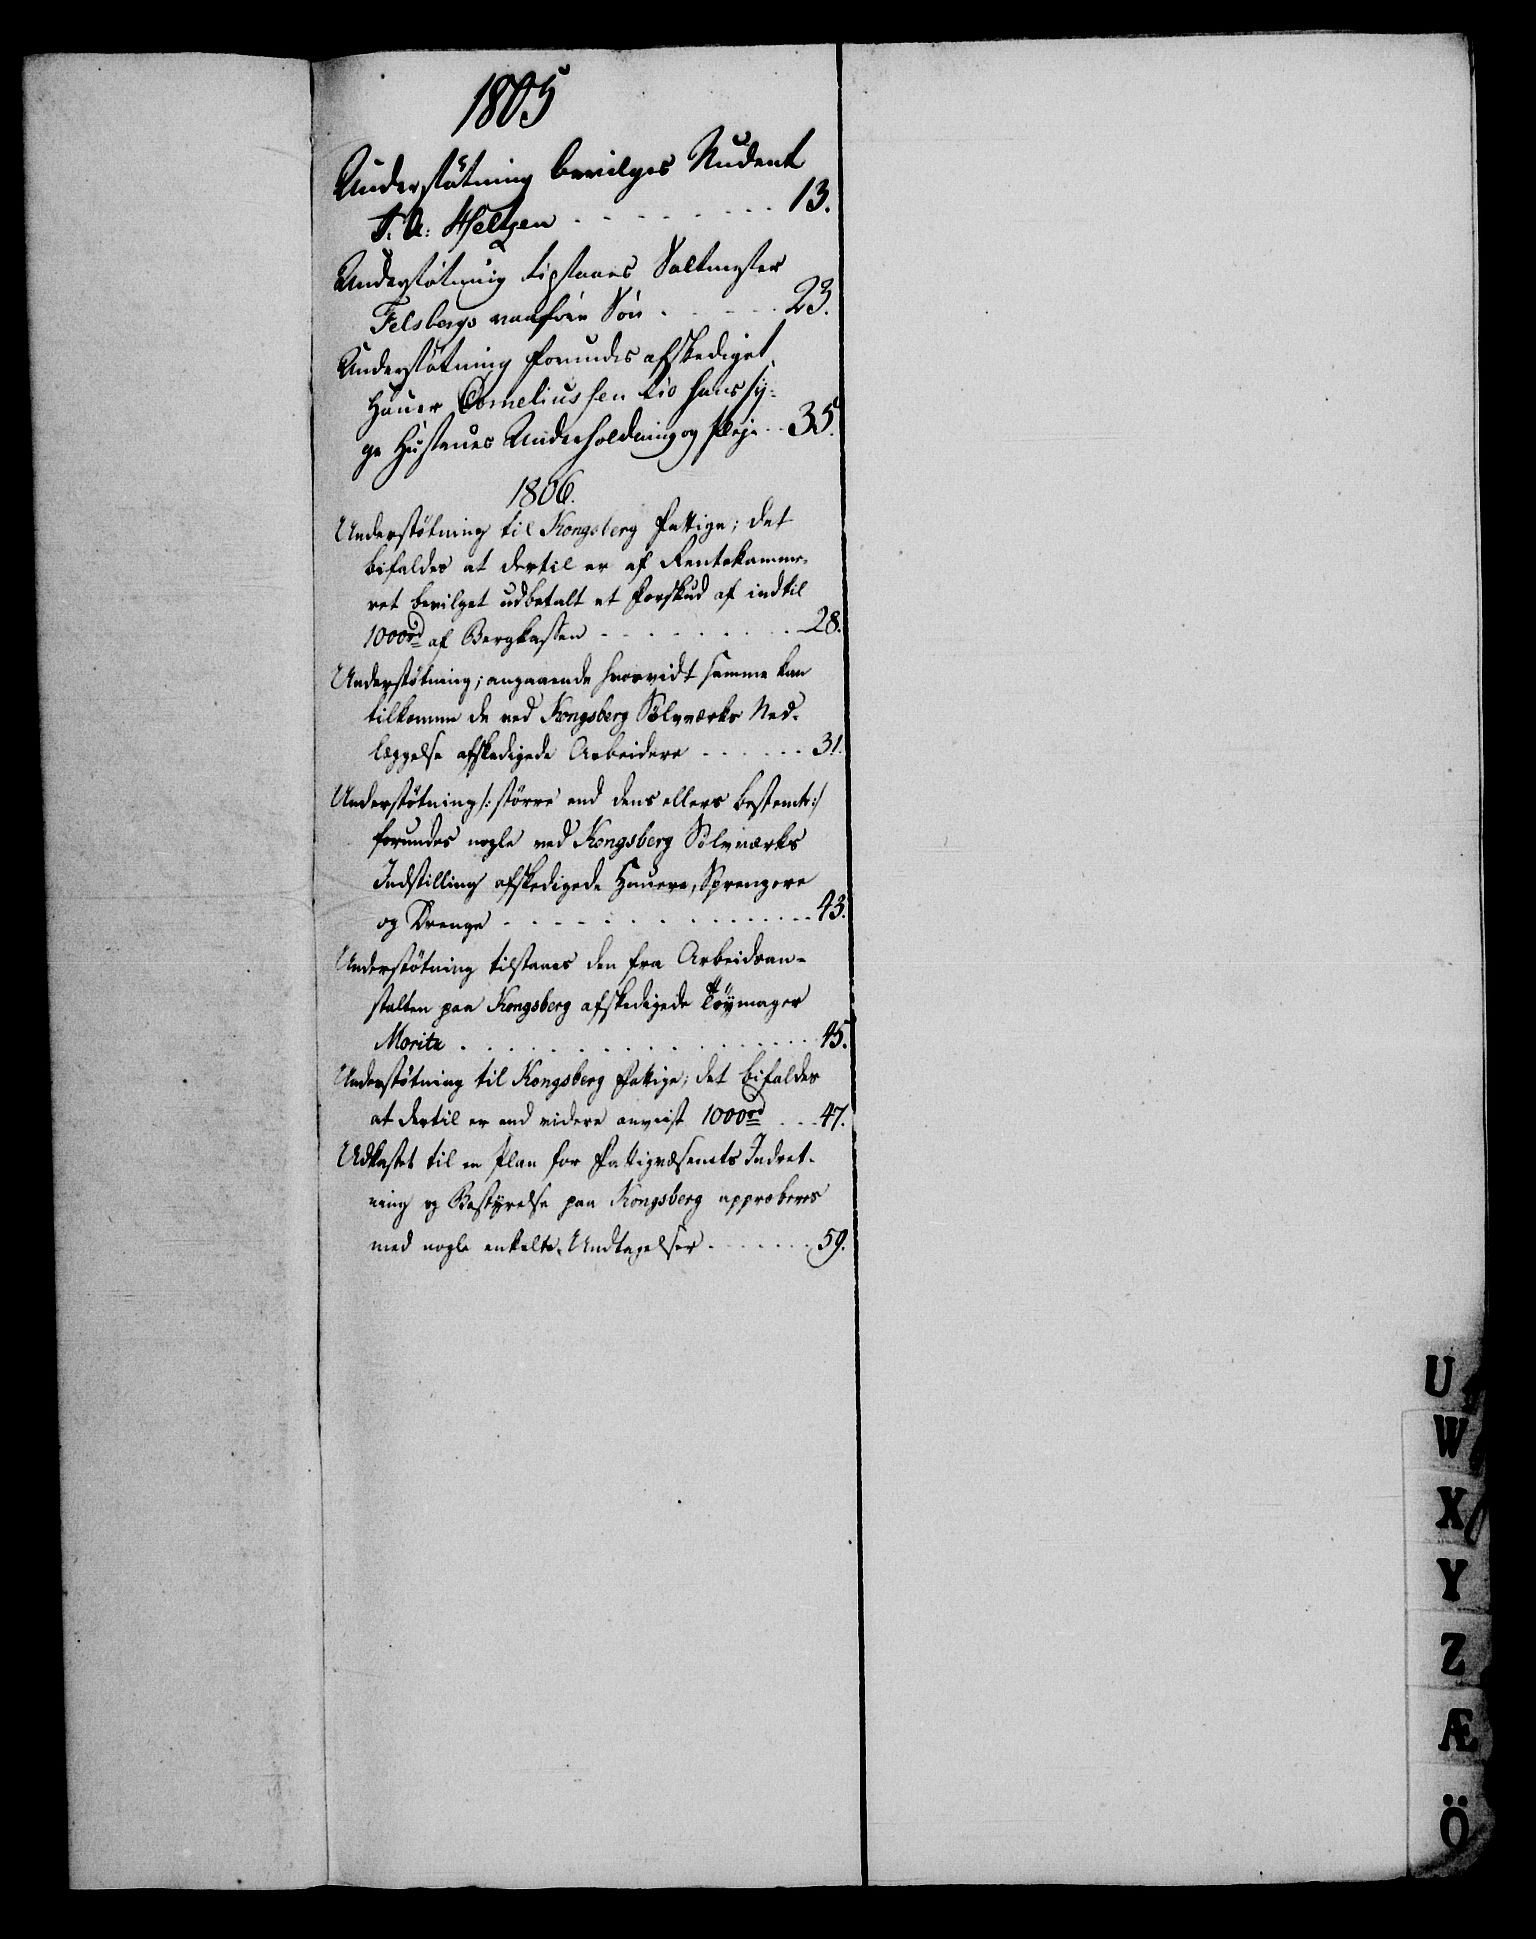 1805
Understötning bevilges Student
A: Heltzen - - - - - - - - 13.
Understötning tilstaaes Saltmester
Felsbergs vanföre Sön - - - - 23.
Understötning forundes afskediget
Hauer Corneliussen til hans sy-
ge Hustrues Underholdning og Pleje - - 35.
1806.
Understötning til Kongsberg Fattige; det
bifaldes at dertil er af Rentekamme-
ret bevilget udbetalt et Forskud af indtil
1000rd af Bergkassen - - - - - - - - 28.
Understötning; angaaende hvorvidt samme kan
tilkomme de ved Kongsberg Sölvværks Ned-
læggelse afskedigede Arbeidere - - - - - - 31.
Understötning /: större end den ellers bestemte :/
forundes nogle ved Kongsberg Sölvværks
Indstilling afskedigede Hauere, Sprengere
og Drenge - - - - - - - - - - - - - 43.
Understötning tilstaaes den fra Arbeidsan-
stalten paa Kongsberg afskedigede Töymager
Moritz - - - - - - - - - - - - - - 45.
Understötning til Kongsberg Fattige; det bifaldes
at dertil er end videre anviist 1000rd - - - 47.
Udkastet til en Plan for Fattigvæsenets Indret-
ning og Bestyrelse paa Kongsberg approberes
med nogle enkelte Undtagelser - - - - - - 59.
U
W
X
Y
Z
Æ
Ö